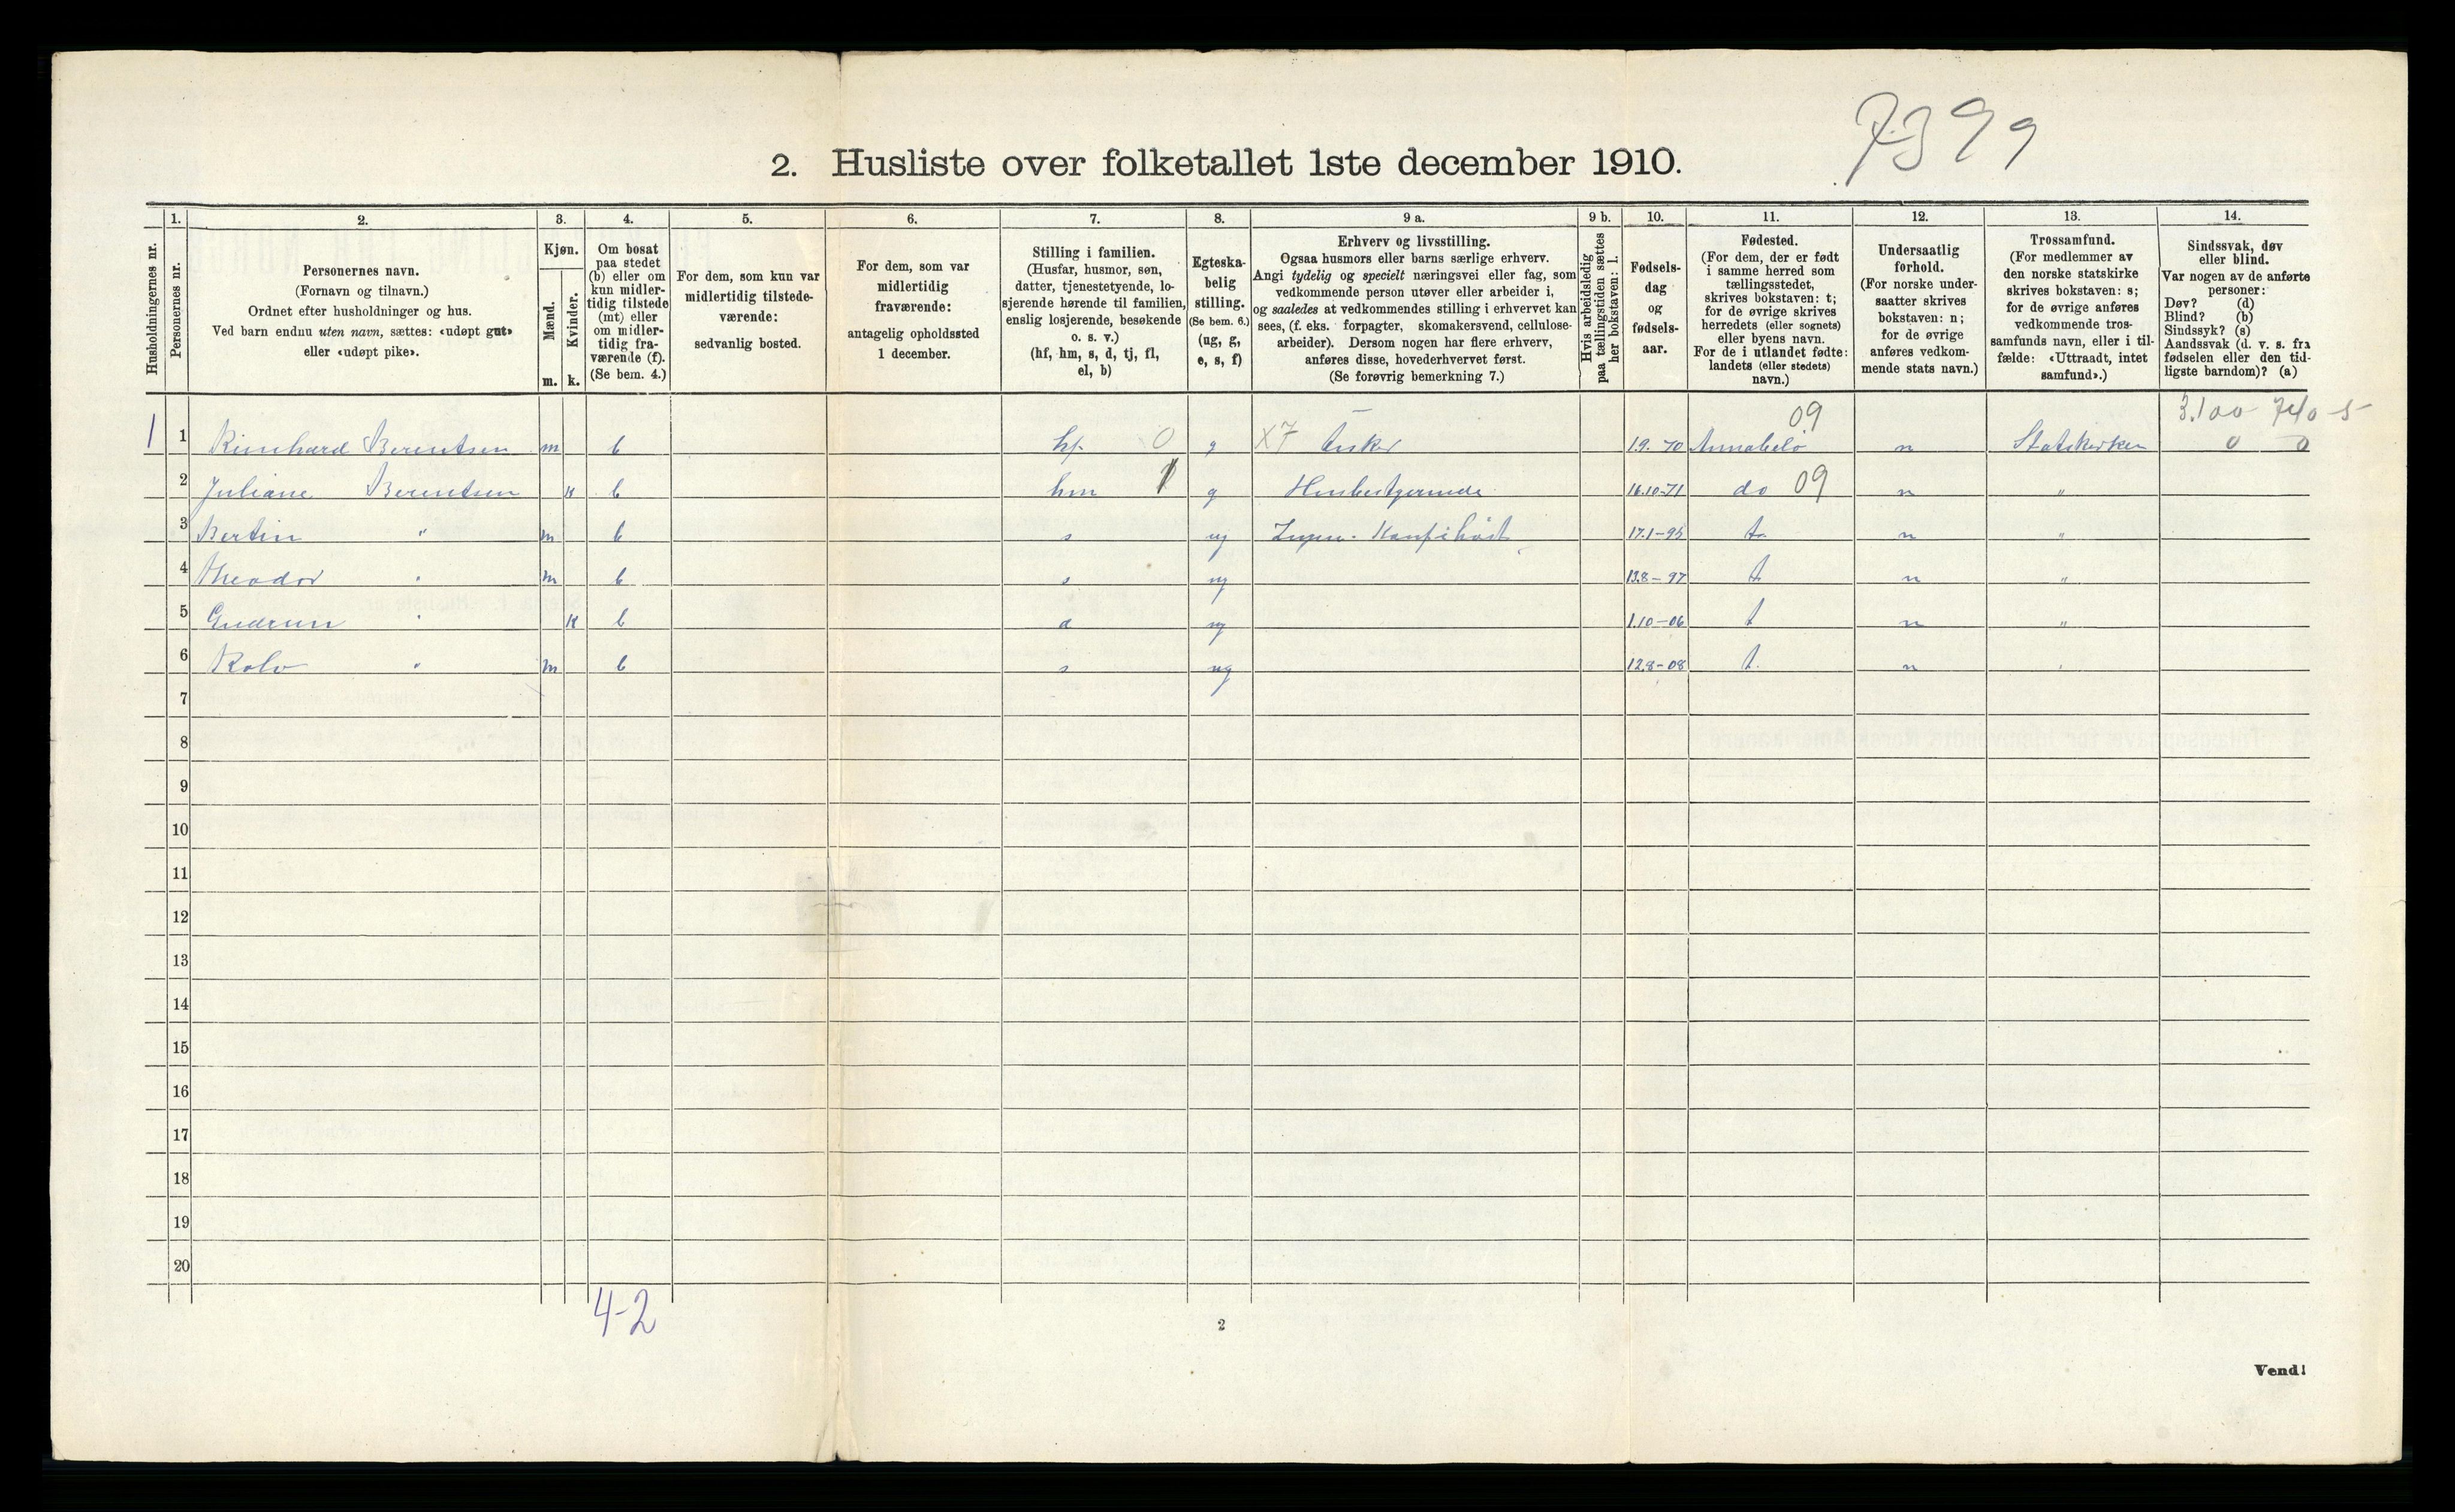 7399
2. Husliste over folketallet 1ste december 1910.
Husholdningernes nr.
1. Personernes nr.
2. Personernes navn.
(Fornavn og tilnavn.)
Ordnet efter husholdninger og hus.
Ved barn endnu uten navn, sættes: «udøpt gut»
eller «udøpt pike».
3. Kjøn.
Mænd. m.
Kvinder. k.
4. Om bosat
paa stedet
(b) eller om
kun midler-
tidig tilstede
(mt) eller
om midler-
tidig fra-
værende (f).
(Se bem. 4.)
5. For dem, som kun var
midlertidig tilstede-
værende:
sedvanlig bosted.
6. For dem, som var
midlertidig
fraværende:
antagelig opholdssted
1 december.
7. Stilling i familien.
(Husfar, husmor, søn,
datter, tjenestetyende, lo-
sjerende hørende til familien,
enslig losjerende, besøkende
o. s. v.)
(hf, hm, s, d, tj, fl,
el, b)
8. Egteska-
belig
stilling.
(Se bem. 6.)
(ug, g,
e, s, f)
9 a. Erhverv og livsstilling.
Ogsaa husmors eller barns særlige erhverv.
Angi tydelig og specielt næringsvei eller fag, som
vedkommende person utøver eller arbeider i,
og saaledes at vedkommendes stilling i erhvervet kan
sees, (f. eks. forpagter, skomakersvend, cellulose-
arbeider). Dersom nogen har flere erhverv,
anføres disse, hovederhvervet først.
(Se forøvrig bemerkning 7.)
9 b. Hvis arbeidsledig
paa tællingstiden sættes
her bokstaven: l.
10. Fødsels-
dag
og
fødsels-
aar.
11. Fødested.
(For dem, der er født
i samme herred som
tællingsstedet,
skrives bokstaven: t;
for de øvrige skrives
herredets (eller sognets)
eller byens navn.
For de i utlandet fødte:
landets (eller stedets)
navn.)
12. Undersaatlig
forhold.
(For norske under-
saatter skrives
bokstaven: n;
for de øvrige
anføres vedkom-
mende stats navn.)
13. Trossamfund.
(For medlemmer av
den norske statskirke
skrives bokstaven: s;
for de øvrige anføres
vedkommende tros-
samfunds navn, eller i til-
fælde: «Uttraadt, intet
samfund».)
14. Sindssvak, døv
eller blind.
Var nogen av de anførte
personer:
Døv? (d)
Blind? (b)
Sindssyk? (s)
Aandssvak (d. v. s. fra
fødselen eller den tid-
ligste barndom)? (a)
09 3.100 740-5
1 1 Reinhard Berentsen m b hf 0 g X7 1.9.70 n Statskirken 0 0
2 Juliane Berentsen k b hm 1 g 16.10-71 do 09 n "
3 Bertin " m b s ug 17.1-95 t. n "
4 Theodor " m b s ug 13.8-97 t. n "
5 Gudrun " k b d ug 1.10-06 t n "
6 Rolv " m b s ug 12.8-08 t. n "
7
8
9
10
11
12
13
14
15
16
17
18
19
20
4-2
2
Vend!